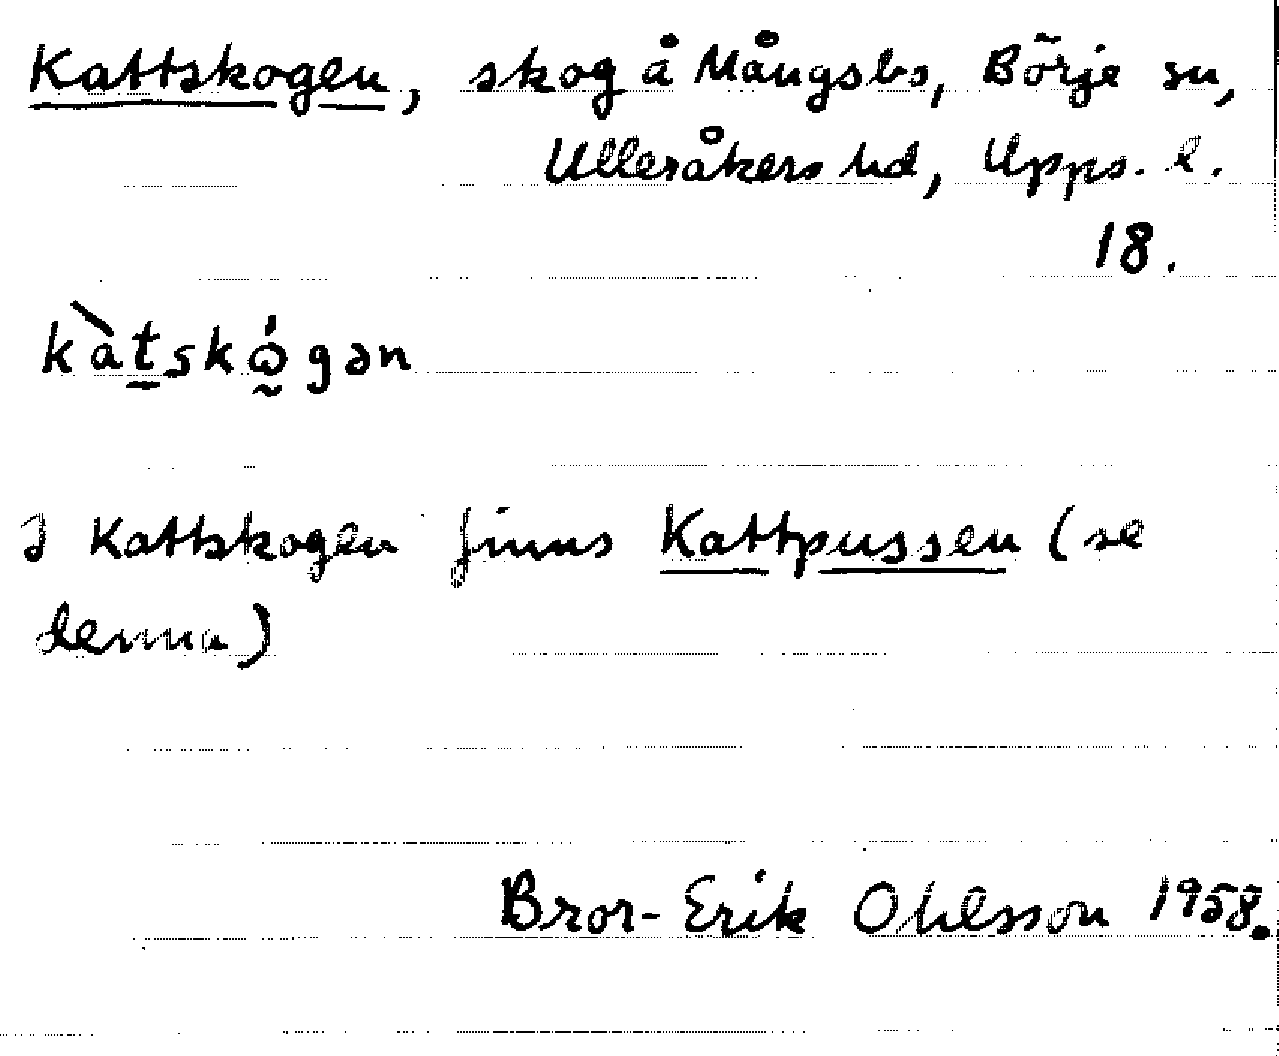 Kattskogen, skog å Mångsbo, Börje sn,
Ulleråkers hd, Upps. l.
18.
kàtskǫ́gən
I Kattskogen finns Kattpussen (se
denna)
Bror-Erik Ohlsson 1958.